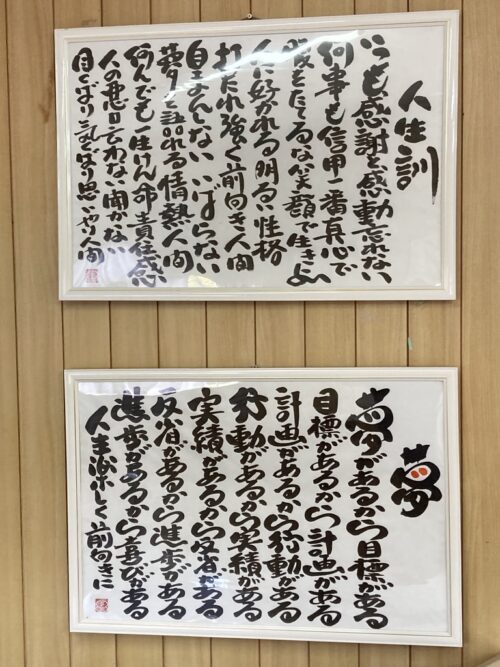 人生訓
いつも感謝と感動忘れない
何事も信用一番真心で
腹をたてるな笑顔で生きよ
人に好かれる明るい性格
打たれ強く前向き人間
自まんしない いばらない
夢を語れる情熱人間
何んでも一生けん命責任感
人の悪口言わない聞かない
目くばり気くばり思いやり人間
夢
夢があるから目標がある
目標があるから計画がある
計画があるから行動がある
行動があるから実績がある
実績があるから反省がある
反省があるから進歩がある
進歩があるから喜びがある
人生楽しく前向きに